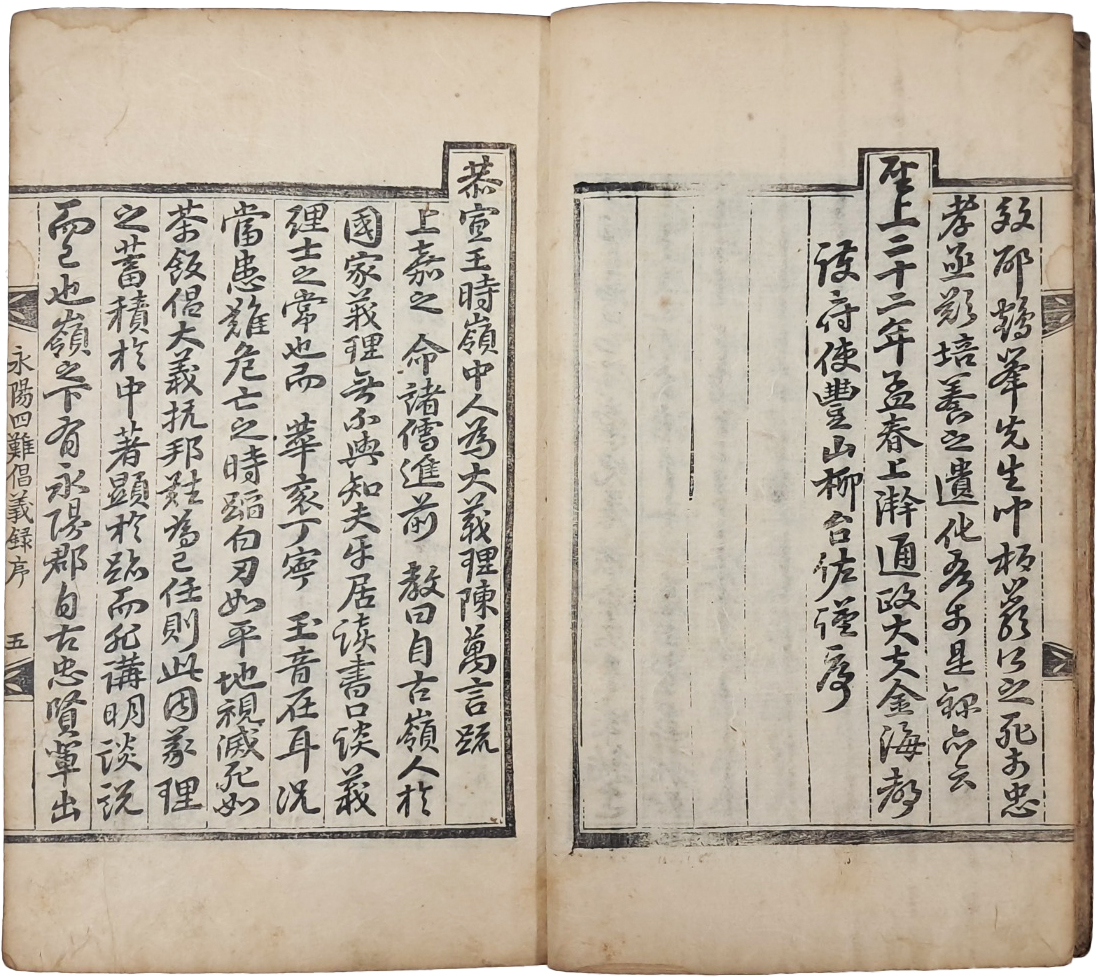 效邵鶴峯先生忡板嚴公之死於忠
孝亟欲培養之遺化吾於是錄亦云
聖上二十二年孟春上澣通政大夫金海都
護府使豐山柳台佐謹序
恭宣王時嶺中人為大義理陳萬言疏
上嘉之 命諸儒進前 教曰自古嶺人於
國家義理無不與知夫平居讀書口談義
理士之常也而 華袞丁寧 玉音在耳況
當患難危亡之時蹈白刃如平地視滅死如
茶飯倡大義抗邦難為己任則此固義理
之蓄積於中著顯於跡而非講明談說
而已也嶺之下有永陽郡自古忠賢輩出
永陽四難倡義錄序
五